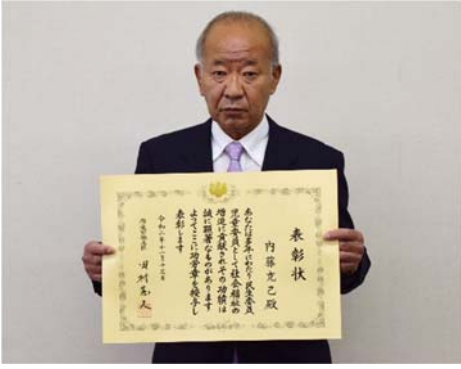 表彰状
内藤克己殿
あなたは多年にわたり民生委員
児童委員として社会福祉の
増進に貢献されその功績は
誠に顕著なものがあります
よってここに功労章を授与し
表彰します
令和二年十一月十三日
厚生労働大臣
田村憲久